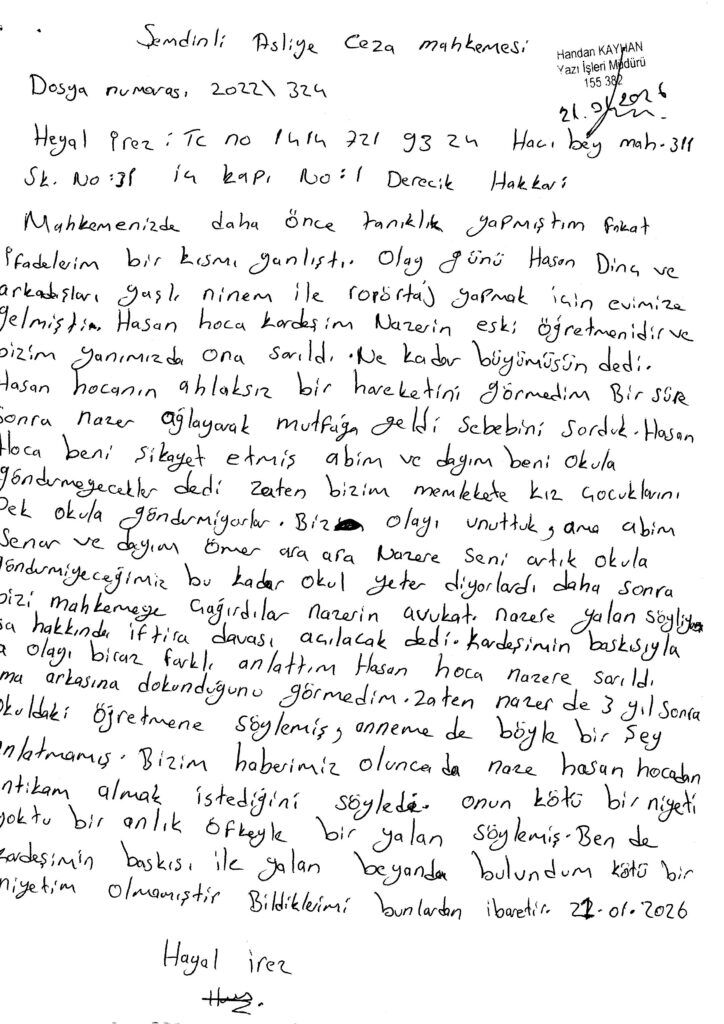 Şemdinli Asliye Ceza mahkemesi
Handan KAYHAN
Yazı İşleri Müdürü
155 382
21.01.2026
Dosya numarası 2022\324
Heyal irez : Tc no 1414 721 93 24 Hacı bey mah. 311
Sk. No:31 iç kapı No:1 Derecik Hakkari
Mahkemenizde daha önce tanıklık yapmıştım fakat
ifadelerim bir kısmı yanlıştı. Olay günü Hasan Dinç ve
arkadaşları yaşlı ninem ile roportaj yapmak için evimize
gelmiştir. Hasan hoca kardeşim Nazerin eski öğretmenidir ve
bizim yanımızda ona sarıldı. Ne kadar büyümüşsün dedi.
Hasan hocanın ahlaksız bir hareketini görmedim Bir süre
sonra nazer ağlayarak mutfağa geldi sebebini sorduk. Hasan
Hoca beni şikayet etmiş abim ve dayım beni okula
göndermeyecekler dedi zaten bizim memlekete kız çocuklarını
Pek okula göndermiyorlar. Biz olayı unuttuk, ama abim
Senar ve dayım Ömer ara ara Nazere seni artık okula
göndermiyeceğimiz bu kadar okul yeter diyorlardı daha sonra
bizi mahkemeye çağırdılar nazerin avukatı nazere yalan söylüyor
sa hakkında iftira davası açılacak dedi. kardeşimin baskısıyla
olayı biraz farklı anlattım Hasan hoca nazere sarıldı
ama arkasına dokunduğunu görmedim. zaten nazer de 3 yıl sonra
okuldaki öğretmene söylemiş, anneme de böyle bir şey
anlatmamış. Bizim haberimiz olunca da naze hasan hocadan
intikam almak istediğini söyledi. onun kötü bir niyeti
yoktu bir anlık öfkeyle bir yalan söylemiş. Ben de
kardeşimin baskısı ile yalan beyanda bulundum kötü bir
niyetim olmamıştır Bildiklerimi bunlardan ibaretir. 21.01.2026
Hayal irez